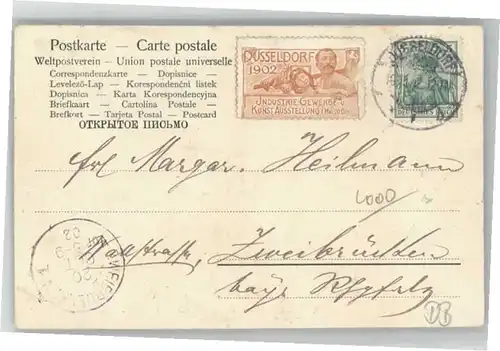 Postkarte — Carte postale
Weltpostverein — Union postale universelle
Correspondenzkarte — Dopisnice —
Levelező-Lap — Korespondenční lístek
Dopisnica — Karta Korespondencyjna
Briefkaart — Cartolina Postale —
Brefkort — Tarjeta Postal — Postcard
ОТКРЫТОЕ ПИСЬМО
DÜSSELDORF
1902
INDUSTRIE GEWERBE U
KUNST AUSSTELLUNG
DÜSSELDORF
frl Margar. Heilmann
1000
Zweibrücken
bayr Rhpfalz
DB